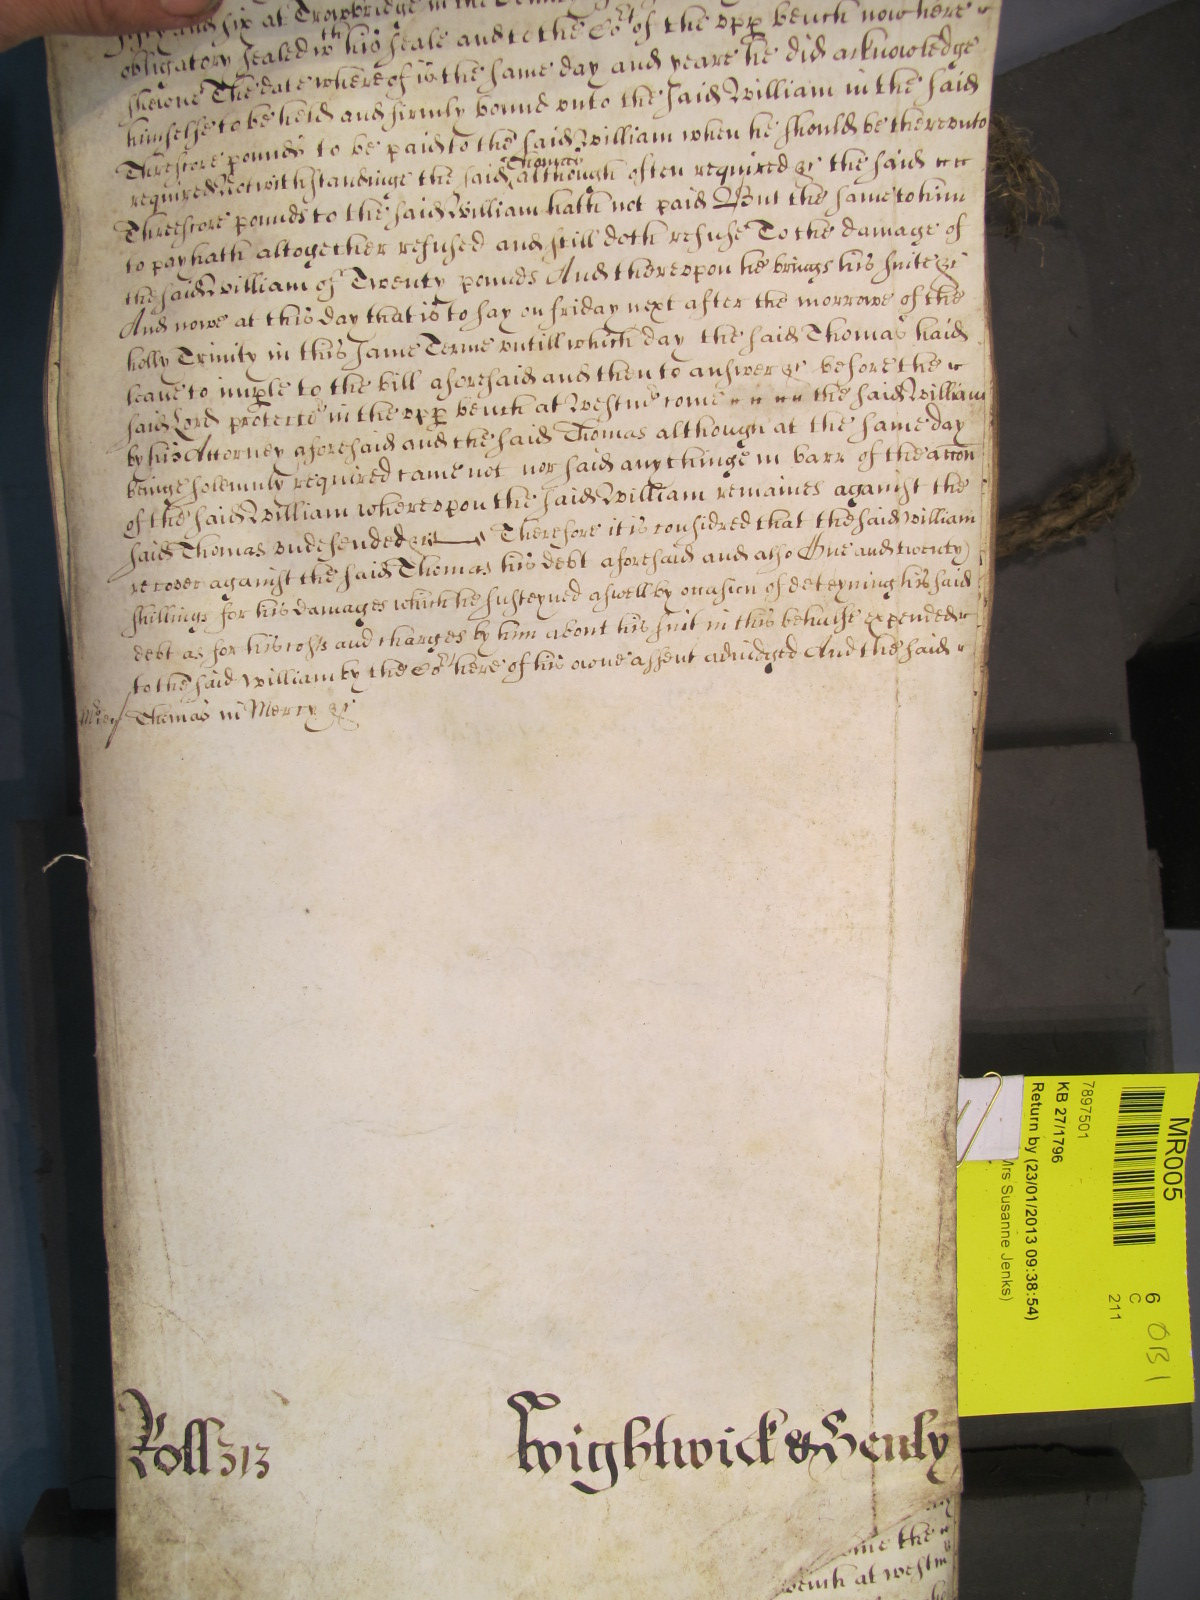 fifty and six at Trowbridge in the
obligatory sealed wth his seale and to the Cort of the upp bench now here
shewne The date whereof is the same day and yeare he did acknowledge
himselfe to be held and firmly bound unto the said William in the said
Threscore pounds to be paid to the said William when he should be thereunto
required Notwithstandinge the said Thomas although often required &c the said
Threescore pounds to the said William hath not paid But the same to him
to pay hath altogether refused and still doth refuse To the damage of
the said William of Twenty pounds And thereupon he brings his suite &c
And nowe at this day that is to say on friday next after the morrowe of the
holly Trinity in this same Terme untill which day the said Thomas had
leave to imple to the bill aforesaid and then to answer &c before the
said Lord protector in the upp bench at Westmr come the said William
by his Attorney aforesaid and the said Thomas although at the same day
beinge solemnly required came not nor said any thinge in barr of the accon
of the said William whereupon the said William remaines against the
said Thomas undefended &c Therefore it is considred that the said William
recover against the said Thomas his debt aforesaid and also One and twenty
shillings for his damages which he susteyned aswell by occasion of deteyning his said
debt as for his costs and charges by him about his suit in this behalfe expended
to the said William by the Cort here of his owne assent adiudged And the said
Thomas in Mercy &c
Roll 313
Wightwick & Henly
ome the
bench at westm
MR005
7897501
KB 27/1796
Return by (23/01/2013 09:38:54)
Mrs Susanne Jenks)
6
C
211
OB1